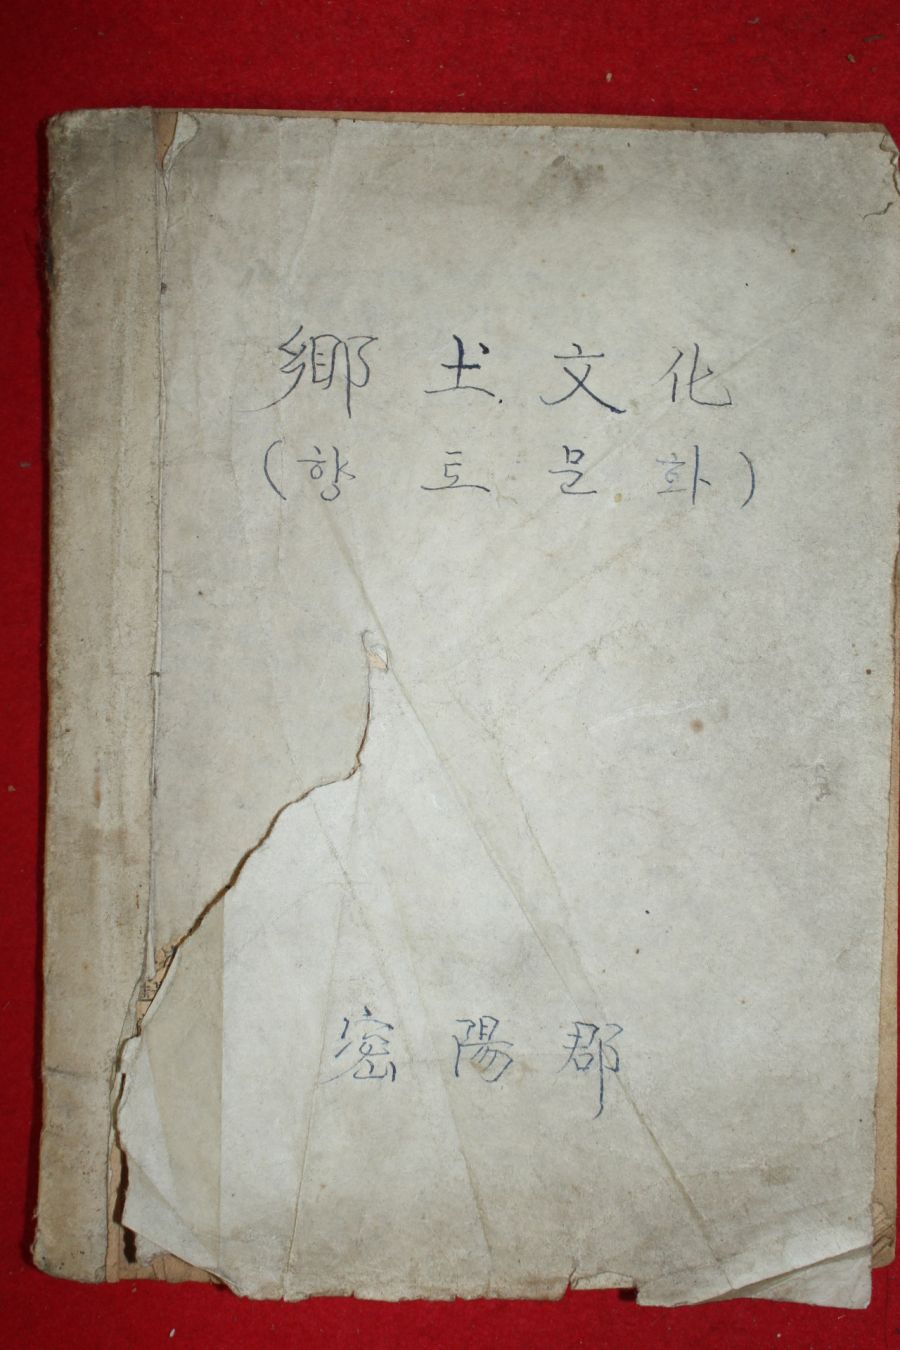 鄕土文化
(향토문화)
密陽郡